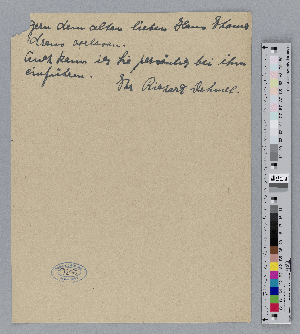 gern dem alten lieben Hans Thoma
draus vorlesen.
Auch kann ich Sie persönlich bei ihm
einführen.
Ihr Richard Dehmel.